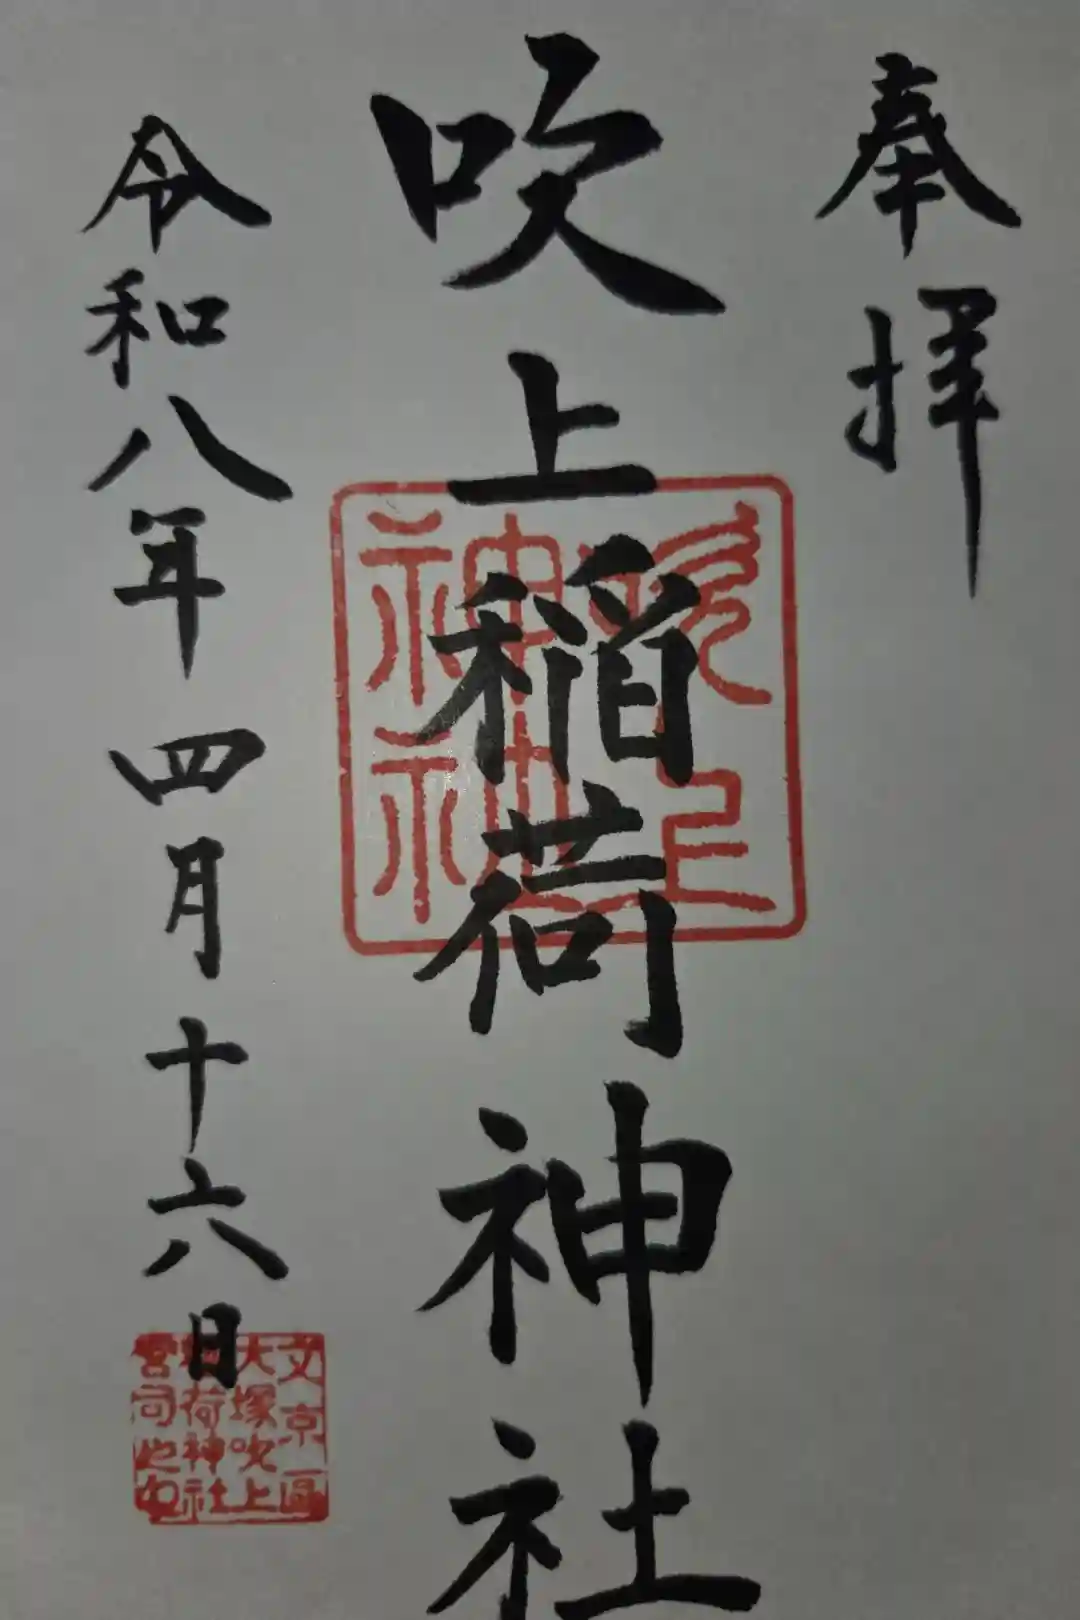 奉拝
吹上稲荷神社
吹上
神社
令和八年四月十六日
文京區
大塚吹上
稲荷神社
宮司之印